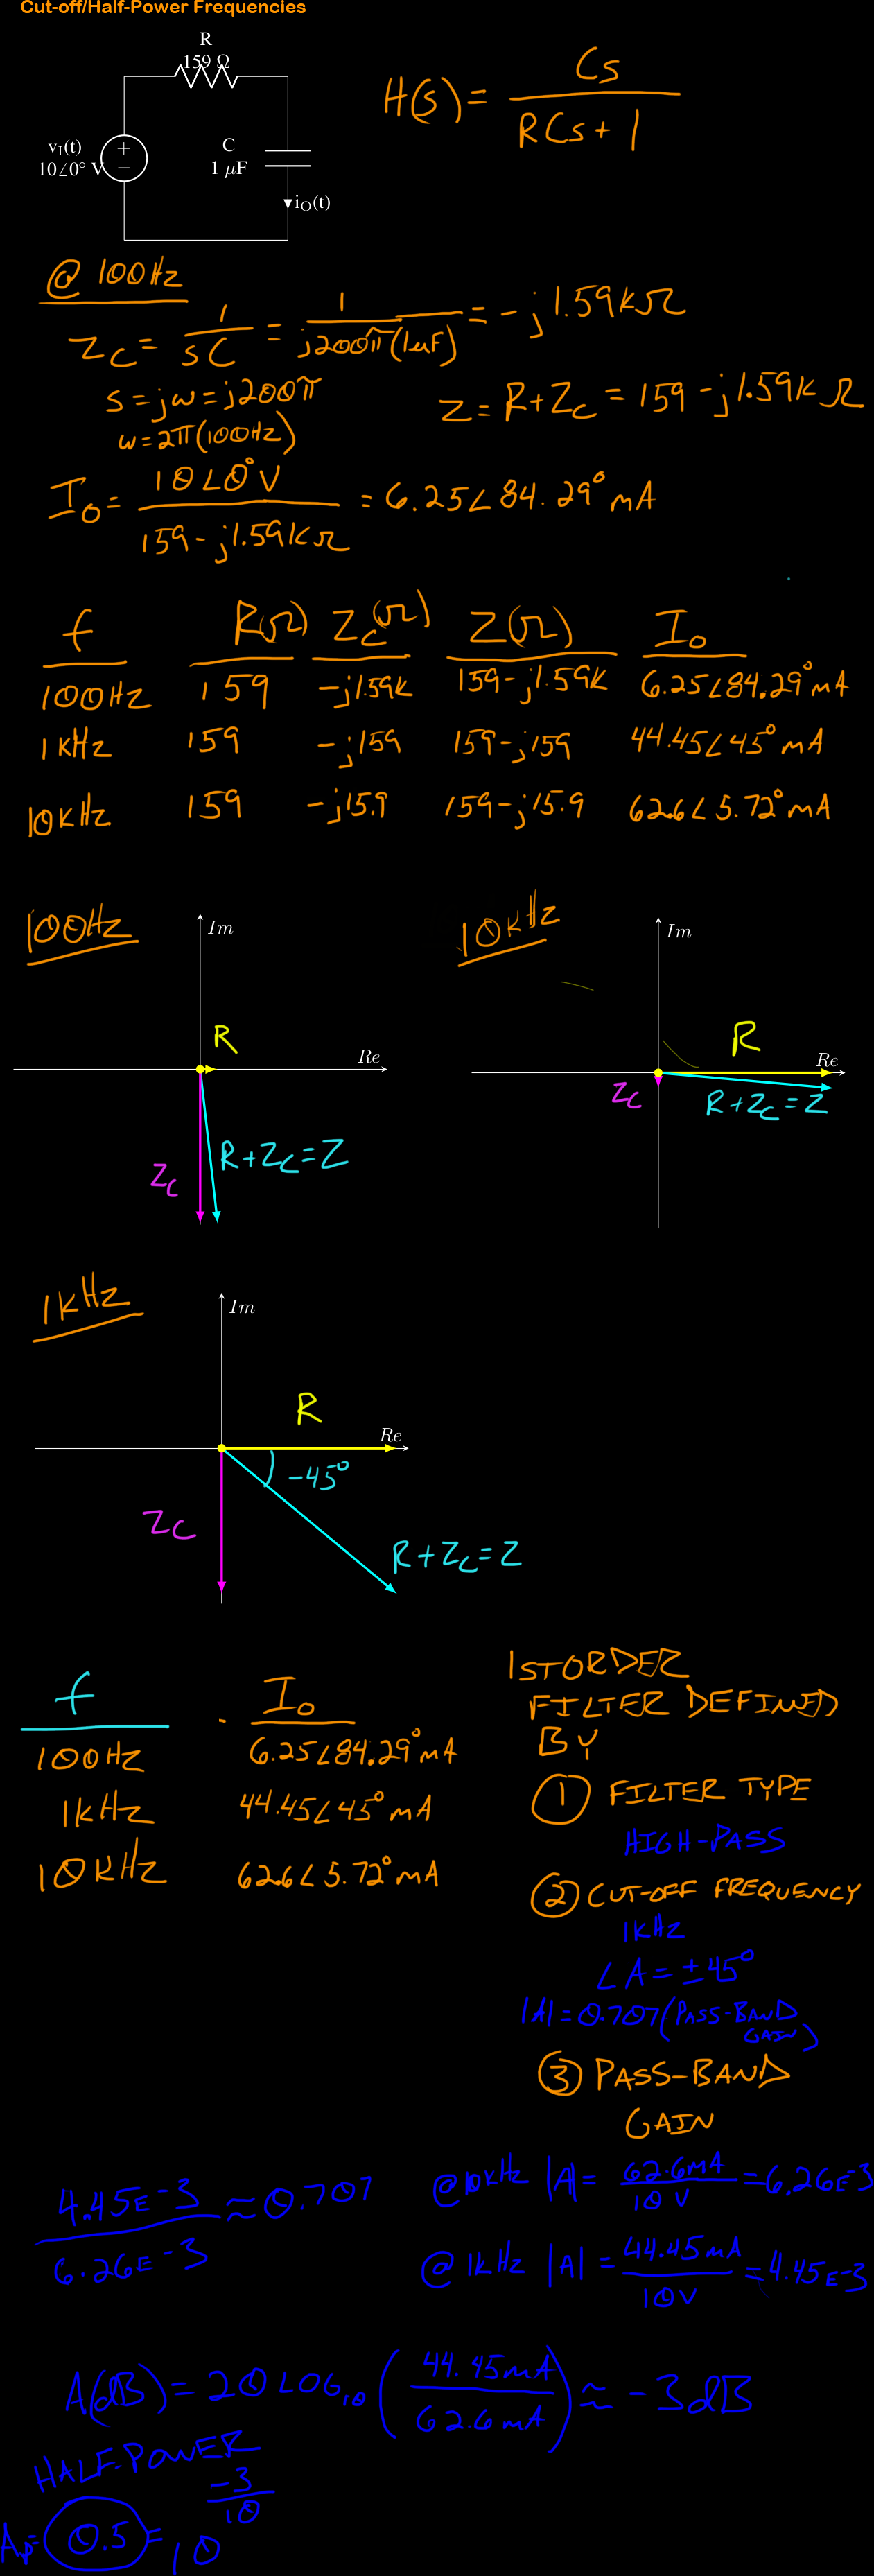 Cut-off/Half-Power Frequencies
R
159 Ω
v_I(t)
10∠0° V
+
−
C
1 μF
i_O(t)
H(s) = Cs / (RCs + 1)
@ 100Hz
Z_C = 1/(sC) = 1/(j200π(1uF)) = -j1.59kΩ
s = jω = j200π
ω = 2π(100Hz)
Z = R + Z_C = 159 - j1.59k Ω
I_O = 10∠0° V / (159 - j1.59kΩ) = 6.25∠84.29° mA
f R(Ω) Z_C(Ω) Z(Ω) I_O
100Hz 159 -j1.59k 159-j1.59k 6.25∠84.29° mA
1kHz 159 -j159 159-j159 44.45∠45° mA
10kHz 159 -j15.9 159-j15.9 62.6∠5.72° mA
100Hz
Im
Re
R
Z_C
R+Z_C=Z
10kHz
Im
Re
R
Z_C
R+Z_C=Z
1kHz
Im
Re
R
-45°
Z_C
R+Z_C=Z
f I_O
100Hz 6.25∠84.29° mA
1kHz 44.45∠45° mA
10kHz 62.6∠5.72° mA
1ST ORDER
FILTER DEFINED
BY
① FILTER TYPE
HIGH-PASS
② CUT-OFF FREQUENCY
1kHz
∠A = ±45°
|A| = 0.707(PASS-BAND
GAIN)
③ PASS-BAND
GAIN
4.45E-3 / 6.26E-3 ≈ 0.707
@10kHz |A| = 62.6mA / 10V = 6.26E-3
@ 1kHz |A| = 44.45mA / 10V = 4.45E-3
A(dB) = 20 LOG_10 (44.45mA / 62.6mA) ≈ -3dB
HALF-POWER
A_P = 0.5 = 10^(-3/10)